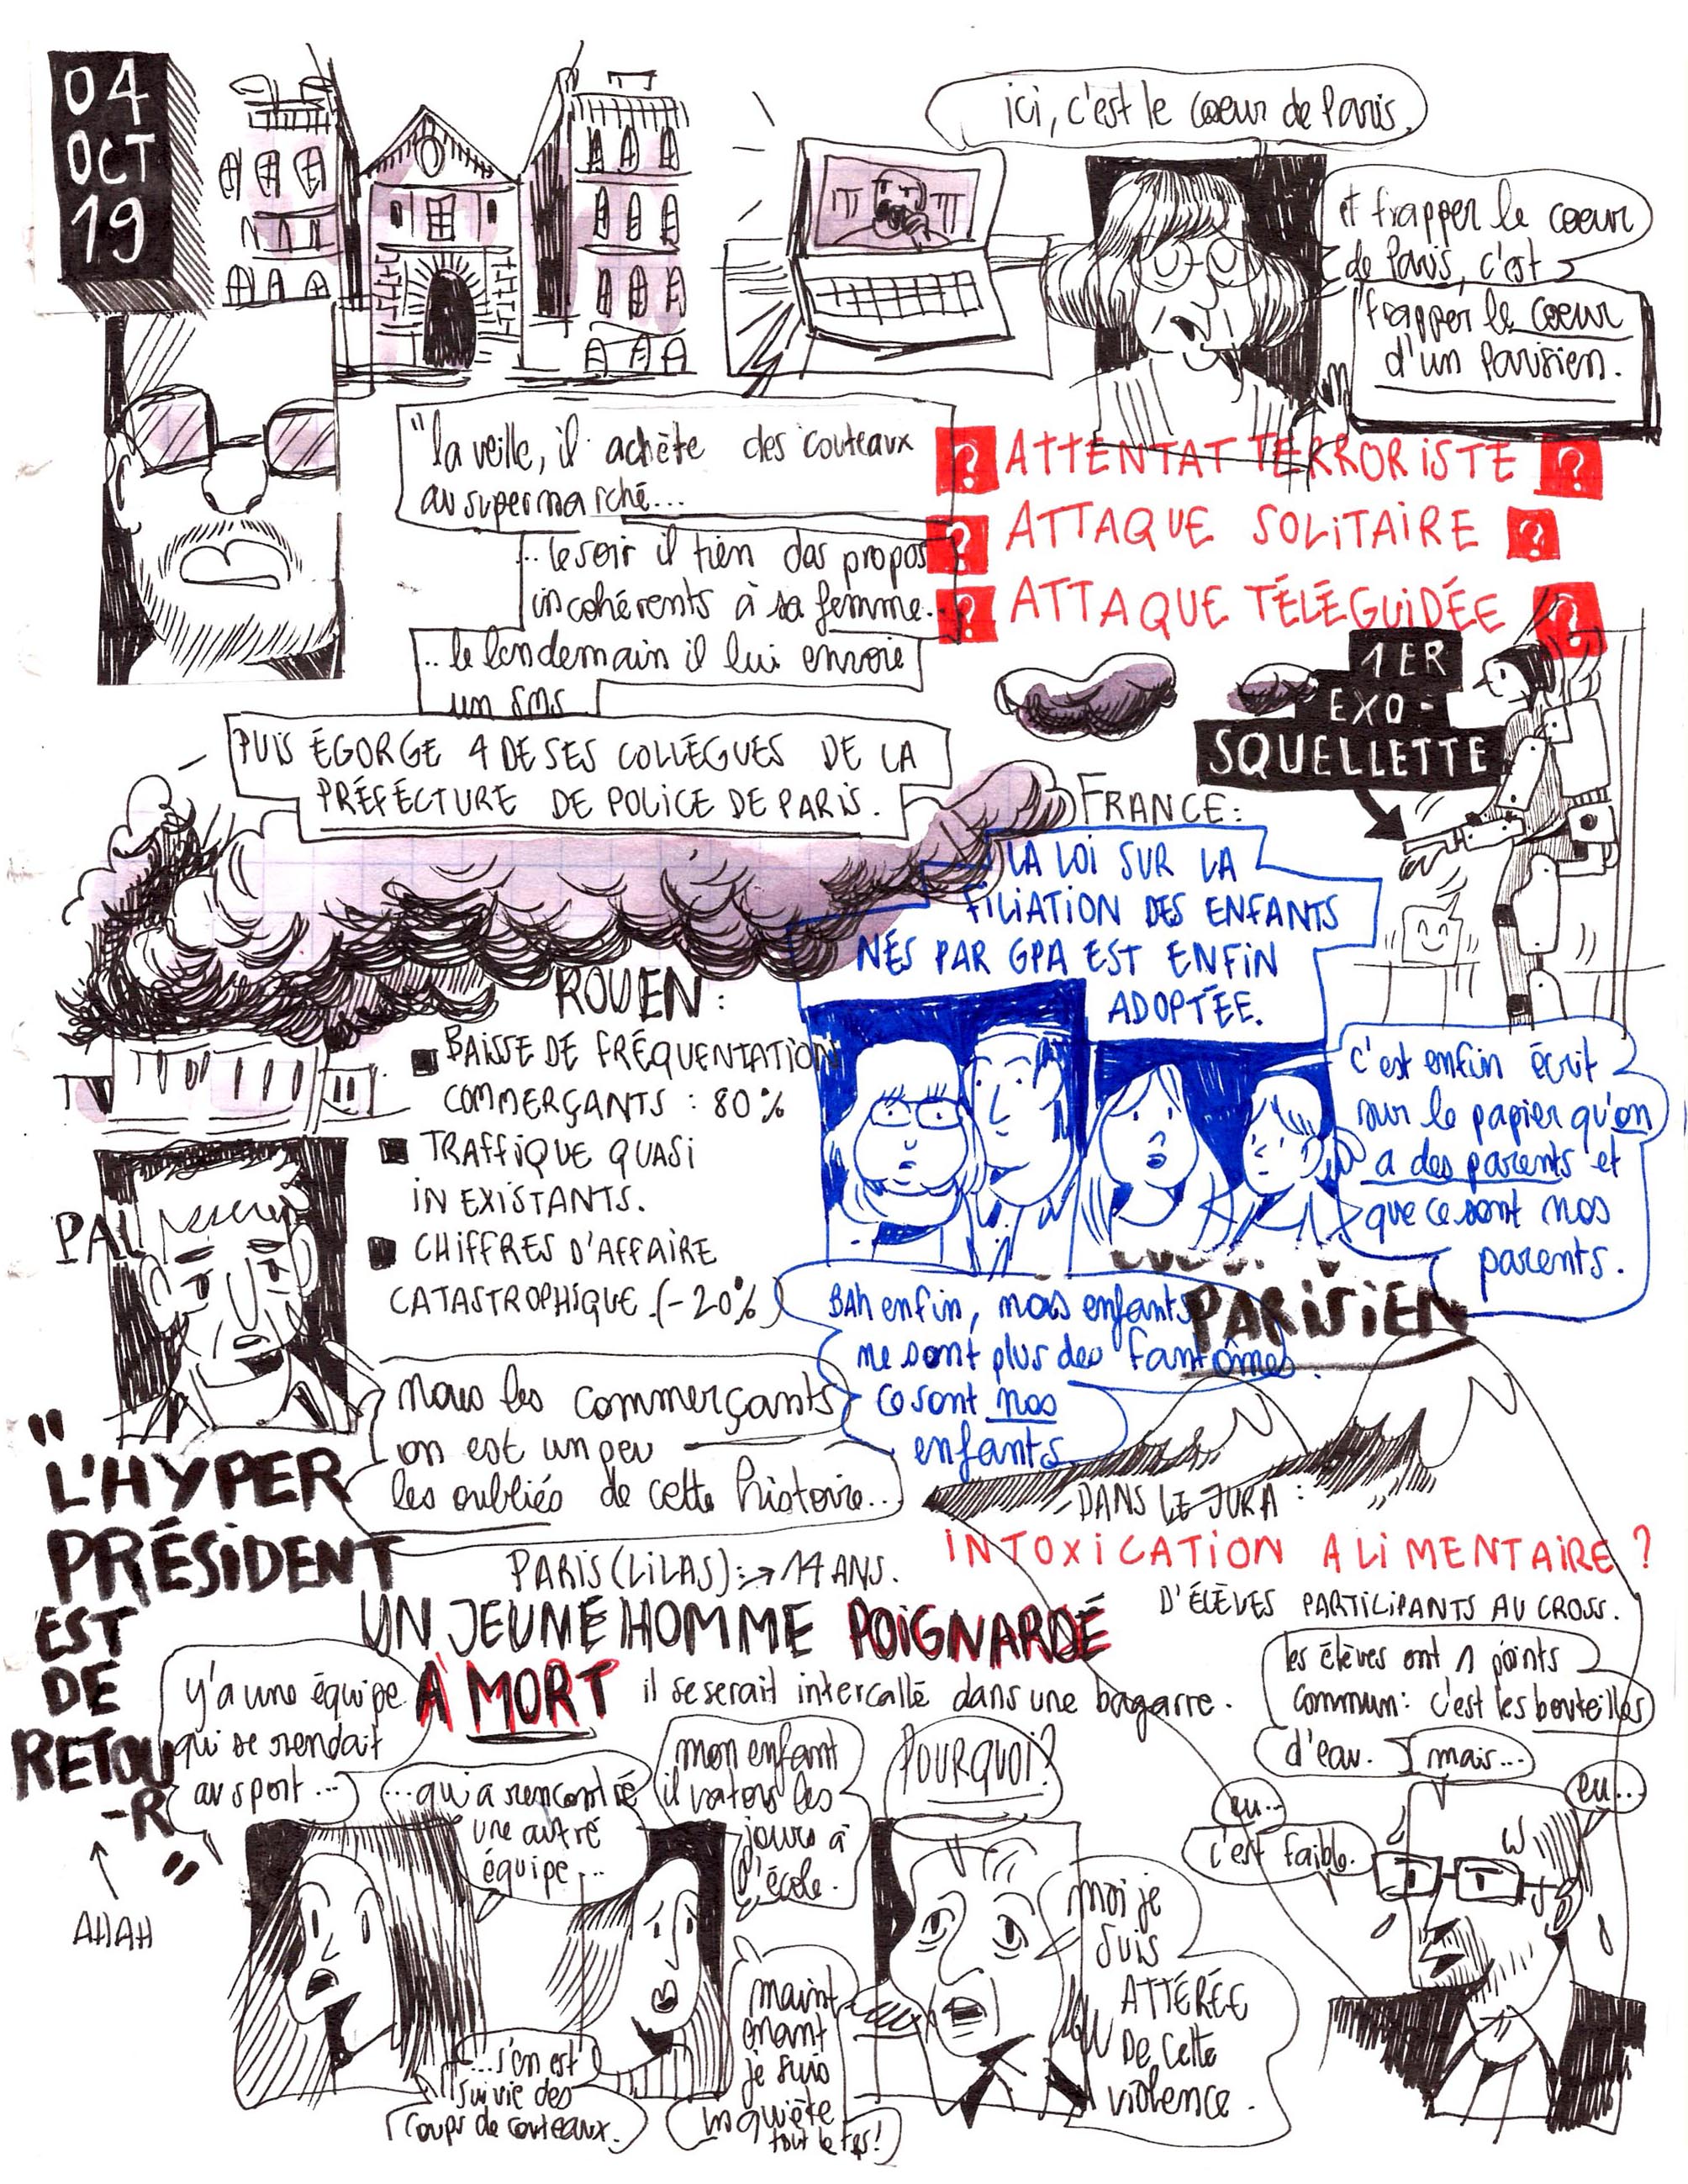 04
OCT
19
ici, c'est le coeur de Paris.
et frapper le coeur
de Paris, c'est
frapper le coeur
d'un Parisien.
"la veille, il achète des couteaux
au supermarché...
...le soir il tien des propos
incohérents à sa femme.
...le lendemain il lui envoie
un SMS
PUIS ÉGORGE 4 DE SES COLLÈGUES DE LA
PRÉFÉCTURE DE POLICE DE PARIS.
? ATTENTAT TERRORISTE ?
? ATTAQUE SOLITAIRE ?
? ATTAQUE TÉLÉGUIDÉE ?
1ER
EXO-
SQUELLETTE
FRANCE:
LA LOI SUR LA
FILIATION DES ENFANTS
NÉS PAR GPA EST ENFIN
ADOPTÉE.
c'est enfin écrit
sur le papier qu'on
a des parents et
que ce sont nos
parents.
BAh enfin, nos enfants
ne sont plus des fantômes.
Ce sont nos
enfants
PARISIEN
ROUEN:
BAISSE DE FRÉQUENTATION
COMMERÇANTS : 80%
TRAFFIQUE QUASI
INEXISTANTS.
CHIFFRES D'AFFAIRE
CATASTROPHIQUE.(-20%)
PAU
nous les commerçants
on est un peu
les oubliés de cette histoire...
"L'HYPER
PRÉSIDENT
EST
DE
RETOU
-R"
AHAH
DANS LE JURA :
INTOXICATION ALIMENTAIRE ?
D'ÉLÈVES PARTICIPANTS AU CROSS.
les élèves ont 1 points
commun: c'est les bouteilles
d'eau.
mais...
eu...
eu...
c'est faible.
PARIS (LILAS) : → 14 ANS.
UN JEUNE HOMME POIGNARDÉ
À MORT il se serait intercallé dans une bagarre.
y'a une équipe
qui se rendait
au sport...
...qui a rencontré
une autre
équipe...
...s'en est
suivie des
coups de couteaux.
mon enfant
il va tous les
jours à
l'école.
maint
enant
je suis
inquiète
tout le tps!
POURQUOI?
moi je
suis
ATTÉRÉE
De Cette
violence.